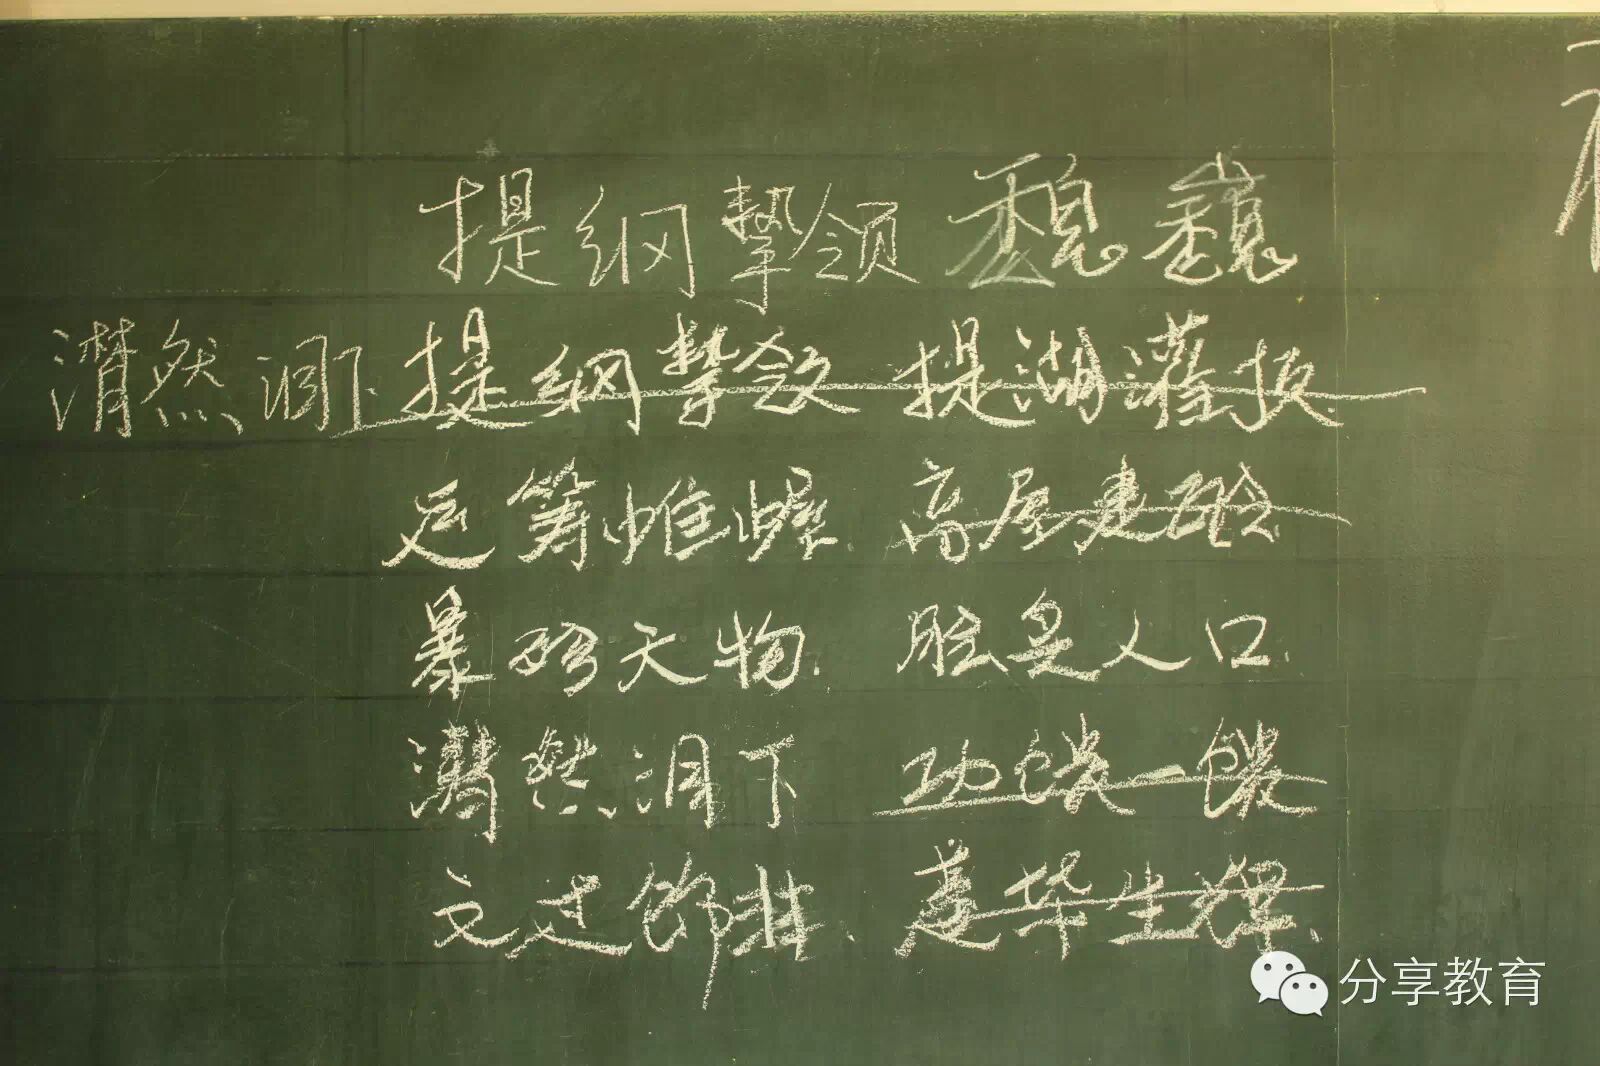 提纲挚领 魏 巍
潸然泪下 提纲挚领 提湖灌顶
运筹帷幄 高屋建瓴
暴殄天物 脍炙人口
潸然泪下 功馈一馈
文过饰非 蓬华生辉
分享教育